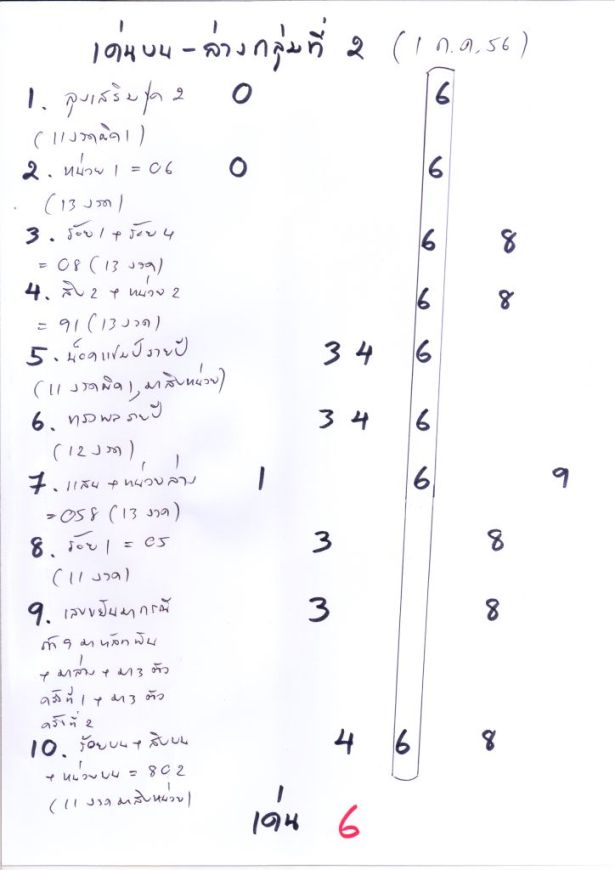 เด่นบน - ล่างกลุ่มที่ 2 (1 ก.ค. 56)
1. ลุงเสริมชุด 2 0 6
(11 งวดผิด 1)
2. หน่วย 1 = 06 0 6
(13 งวด)
3. ร้อย 1 + ร้อย 4 6 8
= 08 (13 งวด)
4. สิบ 2 + หน่วย 2 6 8
= 91 (13 งวด)
5. น็อคแชมป์รายปี 3 4 6
(11 งวดผิด 1, มาสิบหน่วย)
6. ทรงพลรายปี 3 4 6
(12 งวด)
7. แสน + หน่วยล่าง 1 6 9
= 058 (13 งวด)
8. ร้อย 1 = 05 3 8
(11 งวด)
9. เลขขยันมากรณี 3 8
ถ้า 9 มาหลักพัน
+ มาล่าง + มา 3 ตัว
ครั้งที่ 1 + มา 3 ตัว
ครั้งที่ 2
10. ร้อยบน + สิบบน 4 6 8
+ หน่วยบน = 802
(11 งวดมาสิบหน่วย)
เด่น 6